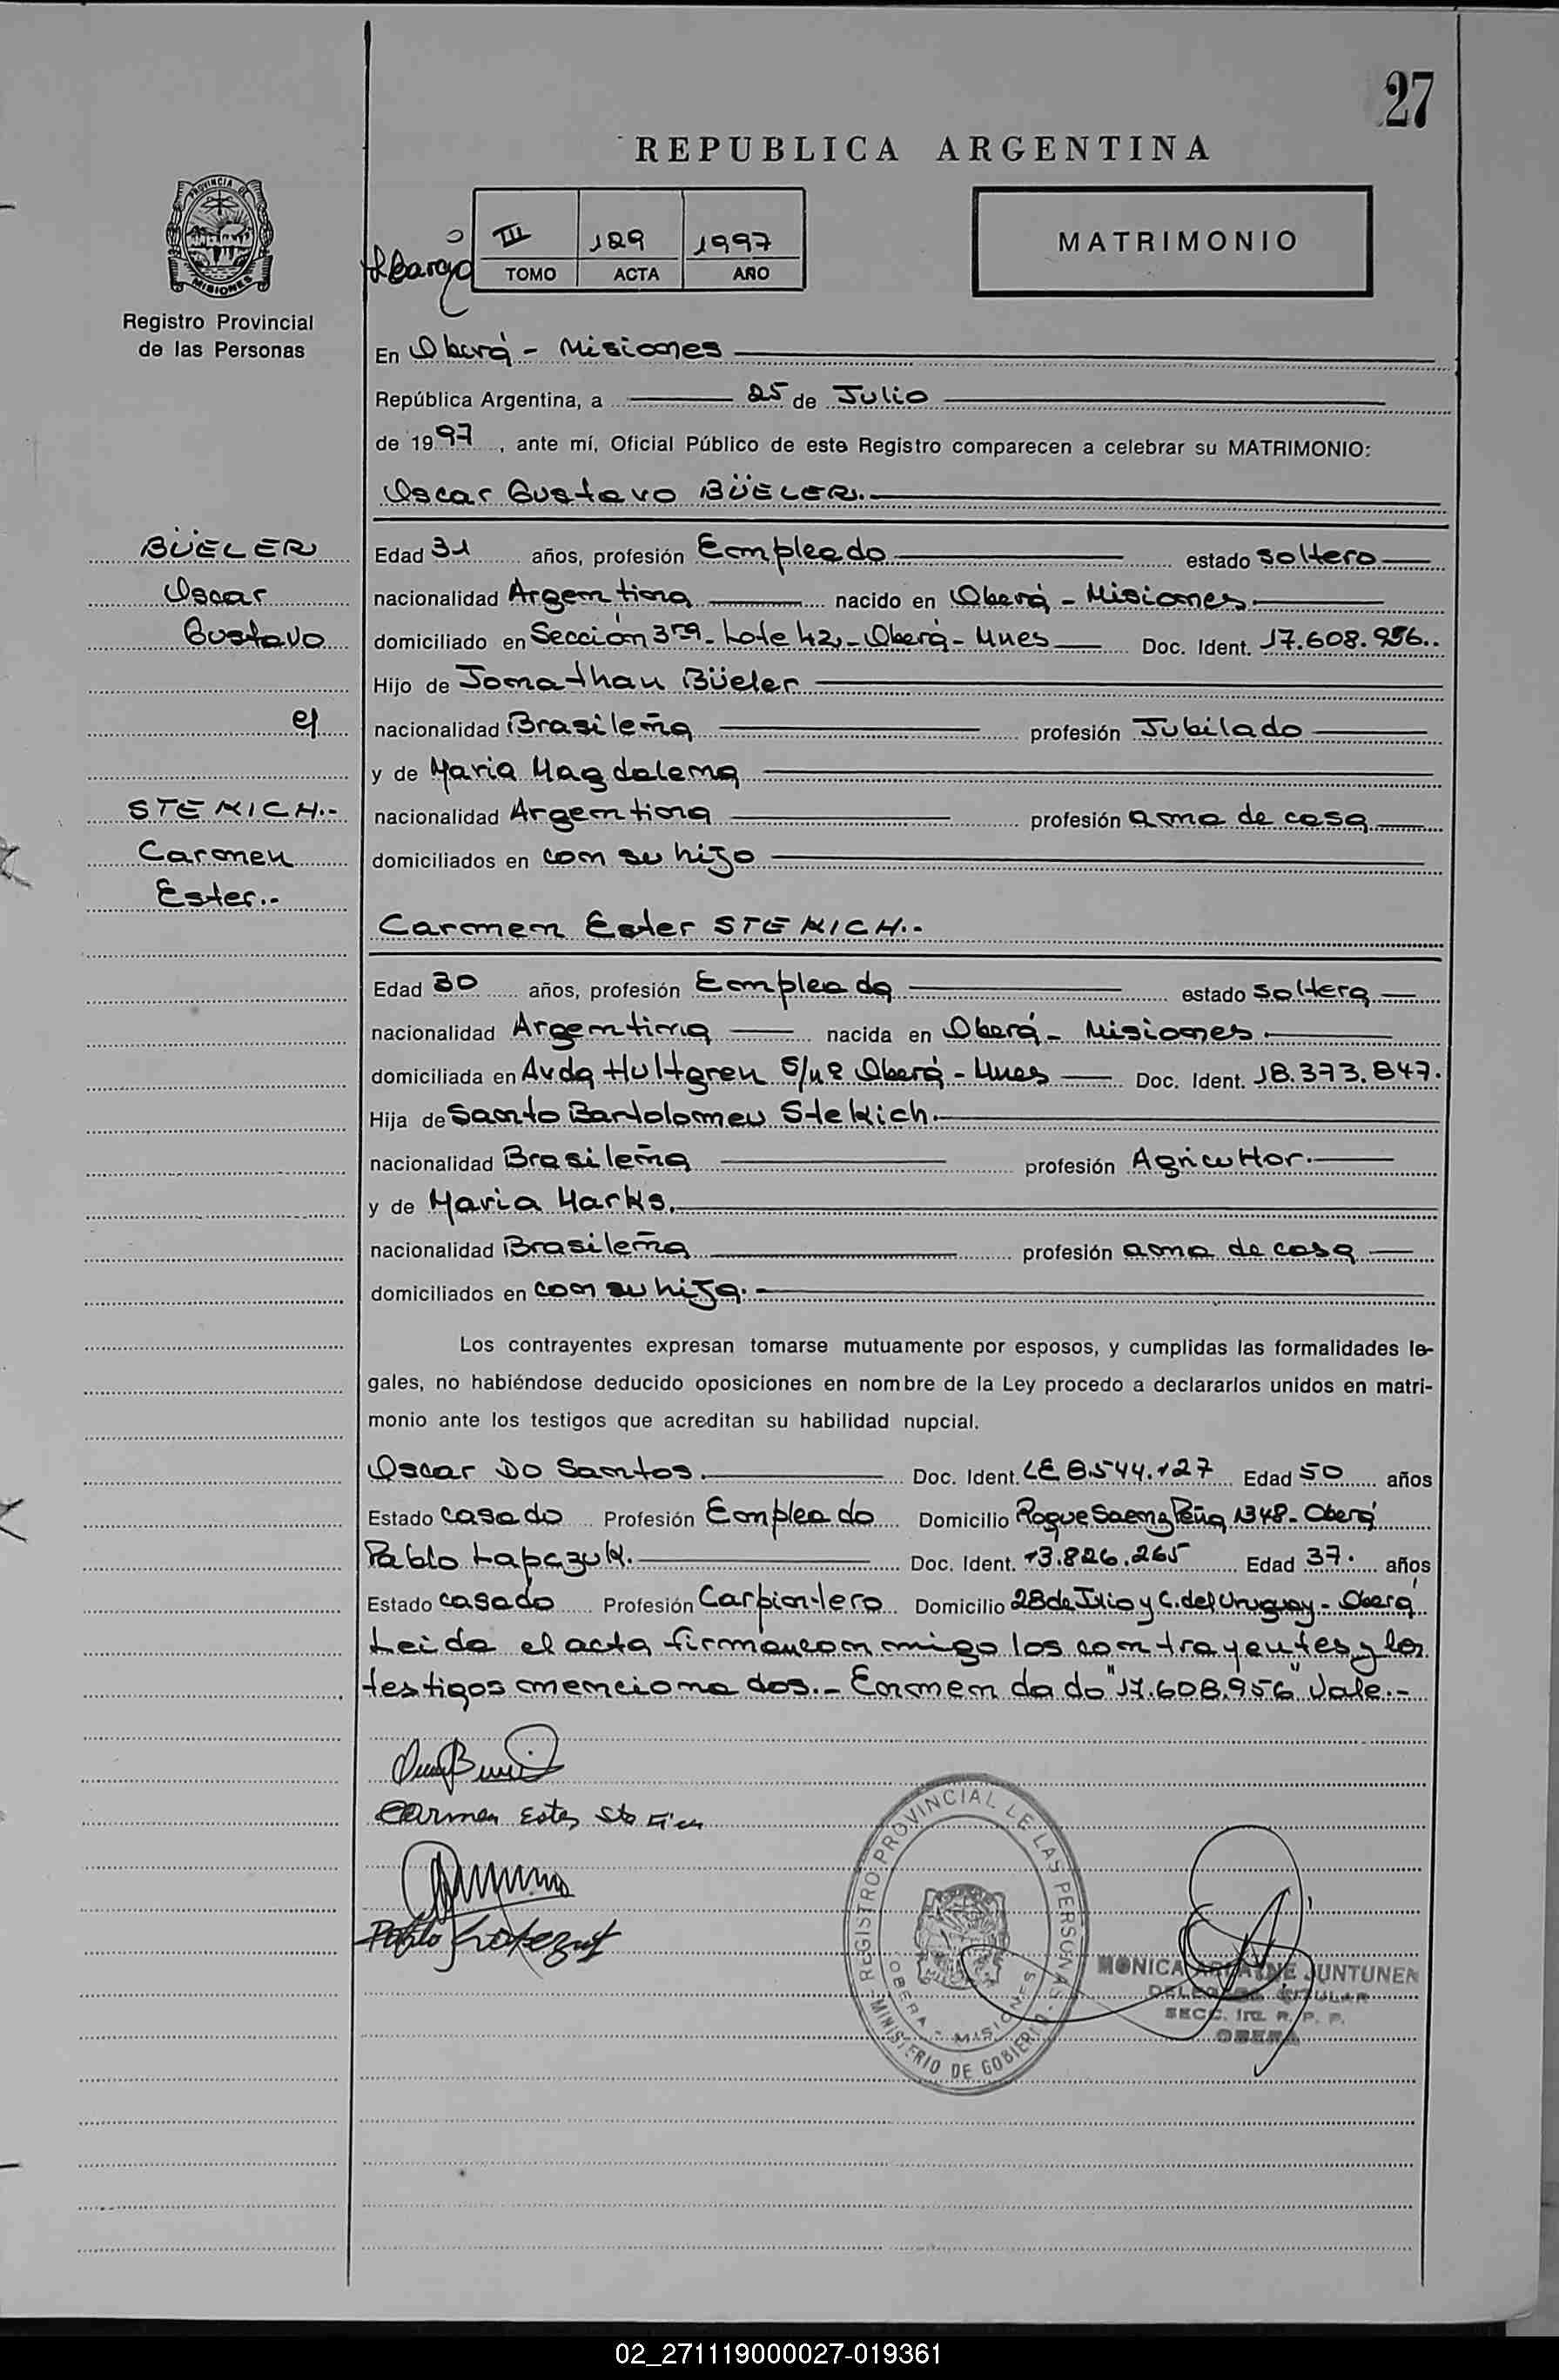 27
REPUBLICA ARGENTINA
PROVINCIA DE
MISIONES
Registro Provincial
de las Personas
III 129 1997
TOMO ACTA AÑO
MATRIMONIO
En Oberá - Misiones
República Argentina, a 25 de Julio
de 1997, ante mí, Oficial Público de este Registro comparecen a celebrar su MATRIMONIO:
Oscar Gustavo BÜELER.
BÜELER
Oscar
Gustavo
e/
STEKICH.-
Carmen
Ester.-
Edad 31 años, profesión Empleado estado soltero
nacionalidad Argentina nacido en Oberá - Misiones
domiciliado en Sección 3ra - Lote 42 - Oberá - Mnes Doc. Ident. 17.608.956..
Hijo de Jonathan Büeler
nacionalidad Brasileña profesión Jubilado
y de Maria Magdalena
nacionalidad Argentina profesión ama de casa
domiciliados en con su hijo
Carmen Ester STEKICH.-
Edad 30 años, profesión Empleada estado soltera
nacionalidad Argentina nacida en Oberá - Misiones
domiciliada en Avda Hultgren S/nº Oberá - Mnes Doc. Ident. 18.373.847.
Hija de Santo Bartolomeu Stekich.
nacionalidad Brasileña profesión Agricultor.
y de Maria Marks.
nacionalidad Brasileña profesión ama de casa
domiciliados en con su hija.-
Los contrayentes expresan tomarse mutuamente por esposos, y cumplidas las formalidades le-
gales, no habiéndose deducido oposiciones en nombre de la Ley procedo a declararlos unidos en matri-
monio ante los testigos que acreditan su habilidad nupcial.
Oscar Do Santos. Doc. Ident. LE 8.544.127 Edad 50 años
Estado casado Profesión Empleado Domicilio Roque Saenz Peña 1348 - Oberá
Pablo Lapazuk. Doc. Ident. 13.826.265 Edad 37. años
Estado casado Profesión Carpintero Domicilio 28 de Julio y C. del Uruguay - Oberá
Leida el acta firman conmigo los contrayentes y los
testigos mencionados.- Enmendado "17.608.956" Vale.-
Carmen Ester
Pablo
REGISTRO PROVINCIAL DE LAS PERSONAS
OBERA - MISIONES
MINISTERIO DE GOBIERNO
MONICA JUNTUNEN
DELEGADA TITULAR
SECC. 1ra. R. P. P.
OBERA
02_271119000027-019361